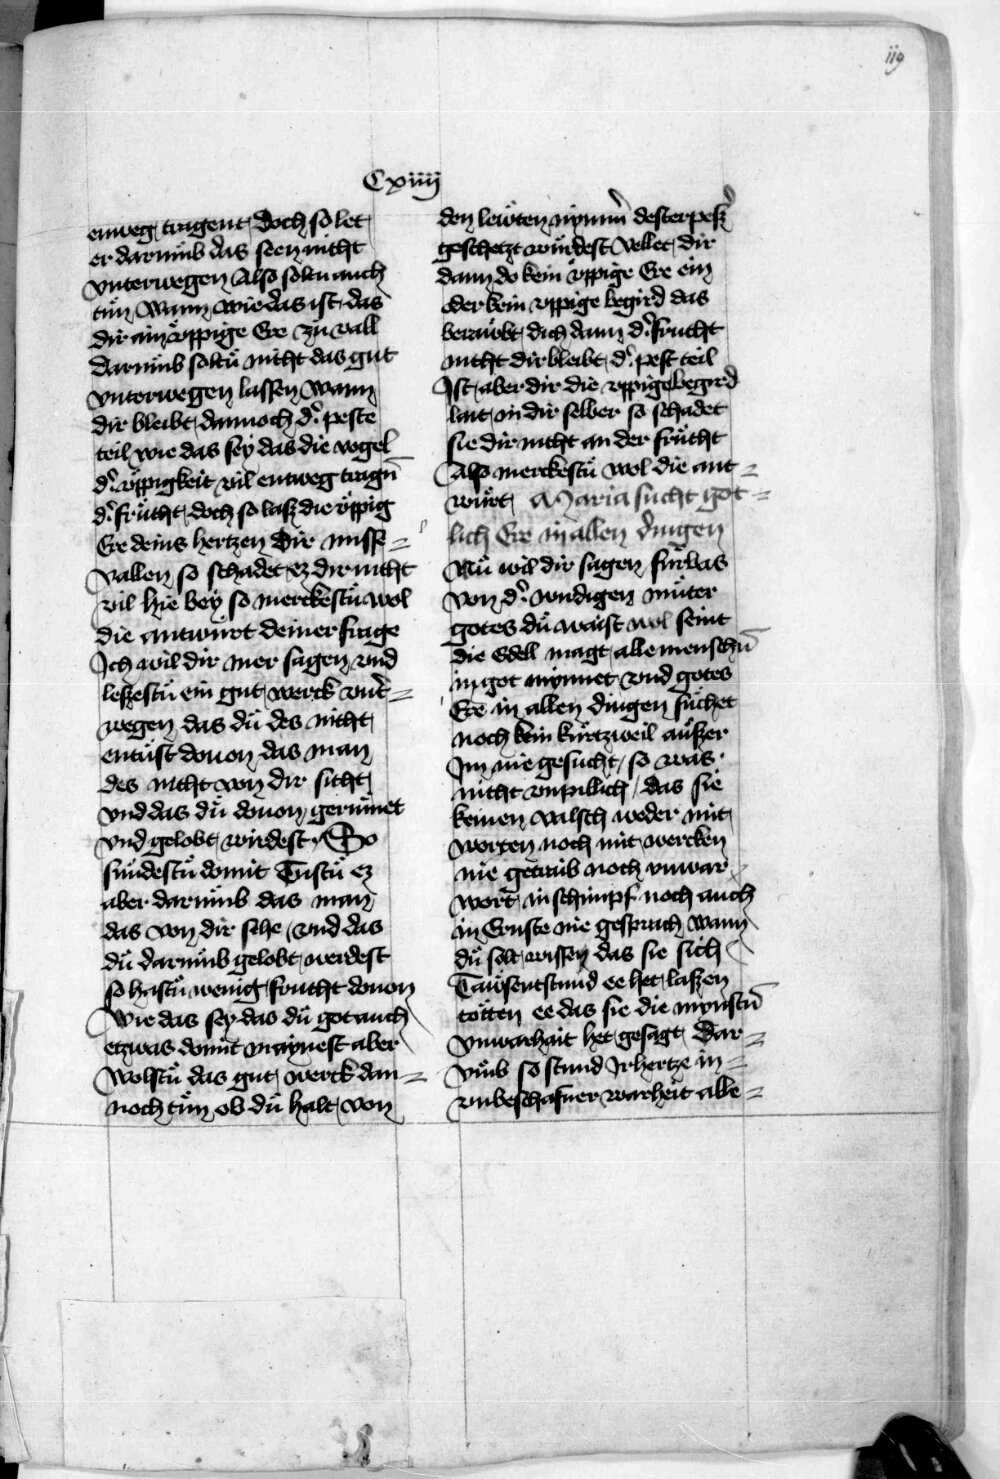 119
Cxiiij
enweg tragent Doch so let
er darumb das seen nicht
vnterwegen Also soltu auch
tuͤn Wann wie das ist das
dir ain uͤppige Ere zuͤ vall
darumb soltuͤ nicht das gut
vnterwegen lassen wann
dir bleibt dannoch d' peste
teil wie das sey das die vogel
d' uͤppigkeit vil entweg tragn̄
d' fruͤcht doch so lasz die uͤppig
Ere deins hertzen Dir misse=
vallen so schadet ez dir nicht
vil hie bey so merckestuͤ wol
die antwuͤrt deiner frage
Ich wil dir mer sagen vnd
leszestuͤ ein gut werck vnt'=
wegen das duͤ des nicht
entuͤst douon das man
des nicht von dir sicht
vnd das duͤ douon geruͤmet
vnd gelobt wirdest So
suͤndestuͤ domit Tustuͤ ez
aber darumb das man
das von dir sehe vnd das
duͤ darumb gelobt werdest
so hastuͤ wenig frucht douon
Wie das sey das duͤ got auch
etzwas domit maynest aber
Wolstuͤ das gut werck dan=
noch tuͤn ob duͤ halt von
den leuͤten nymm' dester pesz'
geschetzt wuͤrdest Vellet dir
dann do kein uͤppige Ere ein
oder kein vppige begird das
beraubt dich dann d' frucht
nicht dir bleibt d' pest teil
Ist aber dir die vppige begird
lait in dir selber so schadet
sie dir nicht an der fruͤcht
Also merckestuͤ wol die ant=
wuͤrt Maria sucht got=
lich Ere in allen dingen
Nuͤ wil dir sagen fuͤrbas
von d' wirdigen muͤter
gotes duͤ waist wol seint
die Edell magt alle menschn̄
in got mynnet vnd gotes
Ere in allen dingen suͤchet
noch kein kuͤrtzweil auszer
Im nie gesucht so was
nicht vnpillich das sie
keinen valsch weder mit
worten noch mit wercken
nie getrieb noch vnwar
wort in schimpf noch auch
in Ernste nie gesprach wann
duͤ solt wissen das sie sich
Tawsentstund ee het laszen
toͤtten ee das sie die mynstn̄
vnwarhait het gesagt Dar=
vmb so stund Ir hertze in=
vnbeschafner warheit alle=